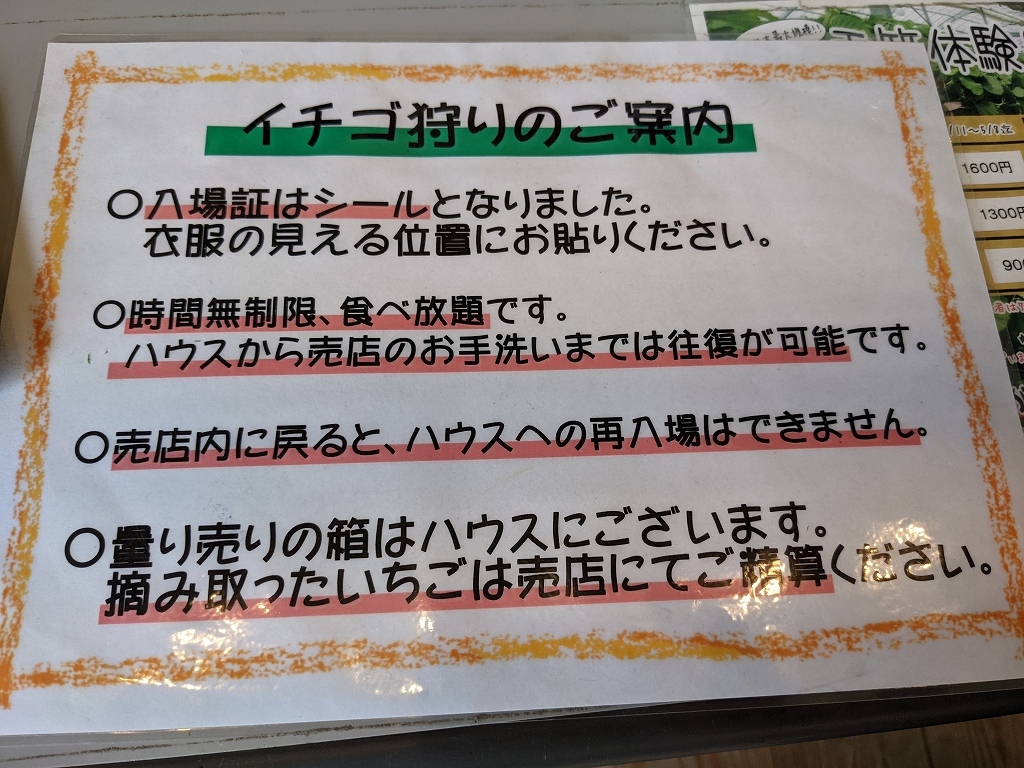 イチゴ狩りのご案内
○入場証はシールとなりました。
衣服の見える位置にお貼りください。
○時間無制限、食べ放題です。
ハウスから売店のお手洗いまでは往復が可能です。
○売店内に戻ると、ハウスへの再入場はできません。
○量り売りの箱はハウスにございます。
摘み取ったいちごは売店にてご精算ください。
体験
/11～5/8迄
1600円
1300円
900